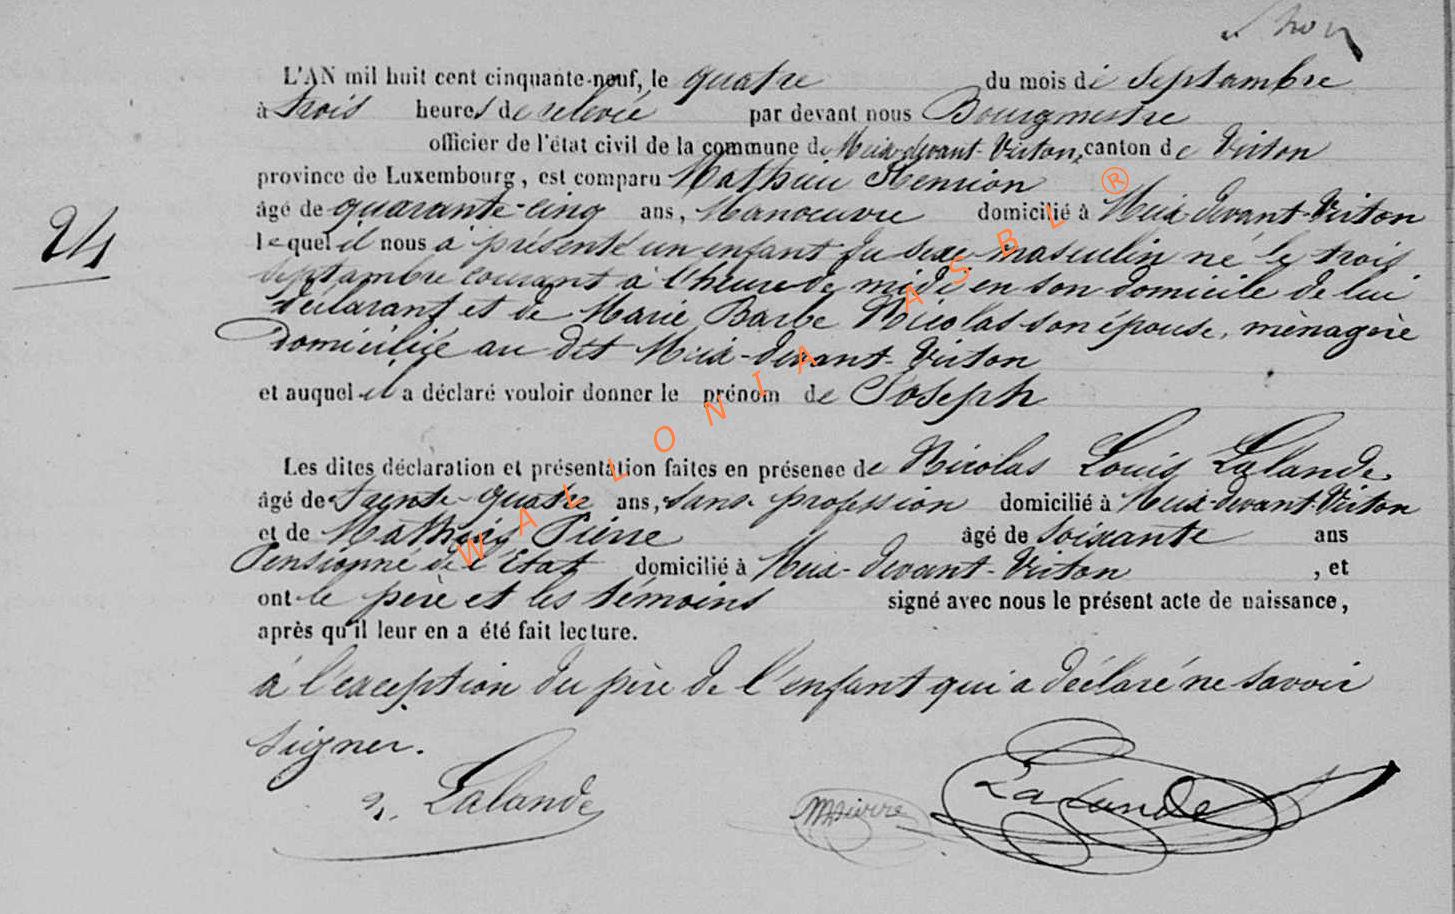 L'AN mil huit cent cinquante-neuf, le quatre du mois de Septembre
à trois heures de relevée par devant nous Bourgmestre
officier de l'état civil de la commune de Meix-devant-Virton, canton de Virton
province de Luxembourg, est comparu Mathieu Henrion
âgé de quarante-cinq ans, Manoeuvre domicilié à Meix-devant-Virton
24
lequel il nous a présenté un enfant du sexe masculin né le trois
Septembre courant à l'heure de midi en son domicile de lui
déclarant et de Marie Barbe Nicolas son épouse, ménagère
domiciliée au dit Meix-devant-Virton
et auquel il a déclaré vouloir donner le prénom de Joseph
Les dites déclaration et présentation faites en présence de Nicolas Louis Lalande
âgé de trente-quatre ans, sans profession domicilié à Meix-devant-Virton
et de Mathieu Pierre âgé de soixante ans
Pensionné de l'Etat domicilié à Meix-devant-Virton, et
ont le père et les témoins signé avec nous le présent acte de naissance,
après qu'il leur en a été fait lecture.
à l'exception du père de l'enfant qui a déclaré ne savoir
signer.
Lalande MPierre Lalande
WALLONIA ASBL ®